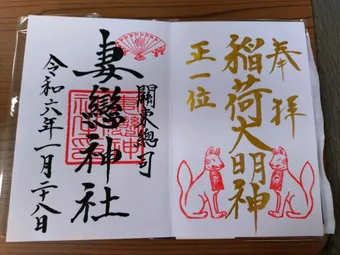 奉拝
稲荷大明神
正一位
關東總司
妻戀神社
令和六年一月二十八日